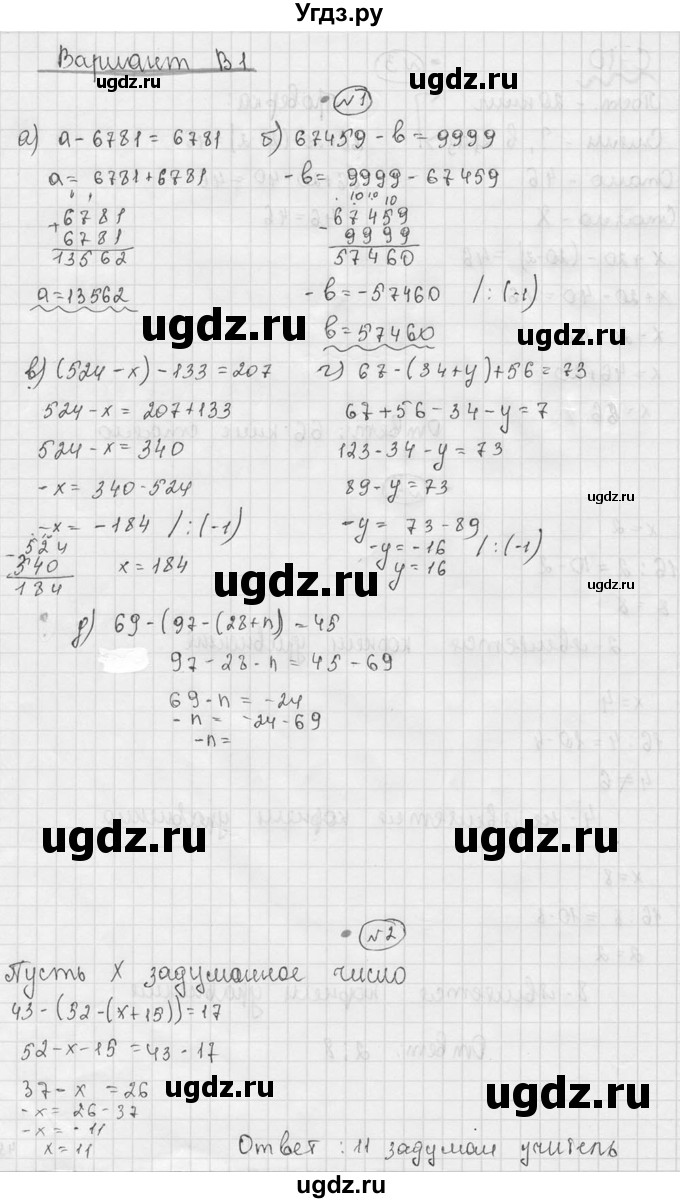 Угдз.ру
Вариант В1
№1
а) а - 6781 = 6781 б) 67459 - в = 9999
а = 6781 + 6781 - в = 9999 - 67459
+6781
6781
13562
10 10 10
-67459
9999
57460
а = 13562 - в = -57460 /:(-1)
в = 57460
в) (524 - х) - 133 = 207 г) 67 - (34 + у) + 56 = 73
524 - х = 207 + 133 67 + 56 - 34 - у = 7
524 - х = 340 123 - 34 - у = 73
-х = 340 - 524 89 - у = 73
-х = -184 /:(-1) -у = 73 - 89
-524
340
184
х = 184 -у = -16 /:(-1)
у = 16
д) 69 - (97 - (28 + n) = 45
97 - 28 - n = 45 - 69
69 - n = -24
- n = -24 - 69
-n =
№2
Пусть Х задуманное число
43 - (52 - (х + 15)) = 17
52 - х - 15 = 43 - 17
37 - х = 26
-х = 26 - 37
-х = -11
х = 11 Ответ : 11 задумал учитель
ugdz.ru
ugdz.ru
ugdz.ru
ugdz.ru
ugdz.ru
ugdz.ru
ugdz.ru
ugdz.ru
ugdz.ru
ugdz.ru
ugdz.ru
ugdz.ru
ugdz.ru
ugdz.ru